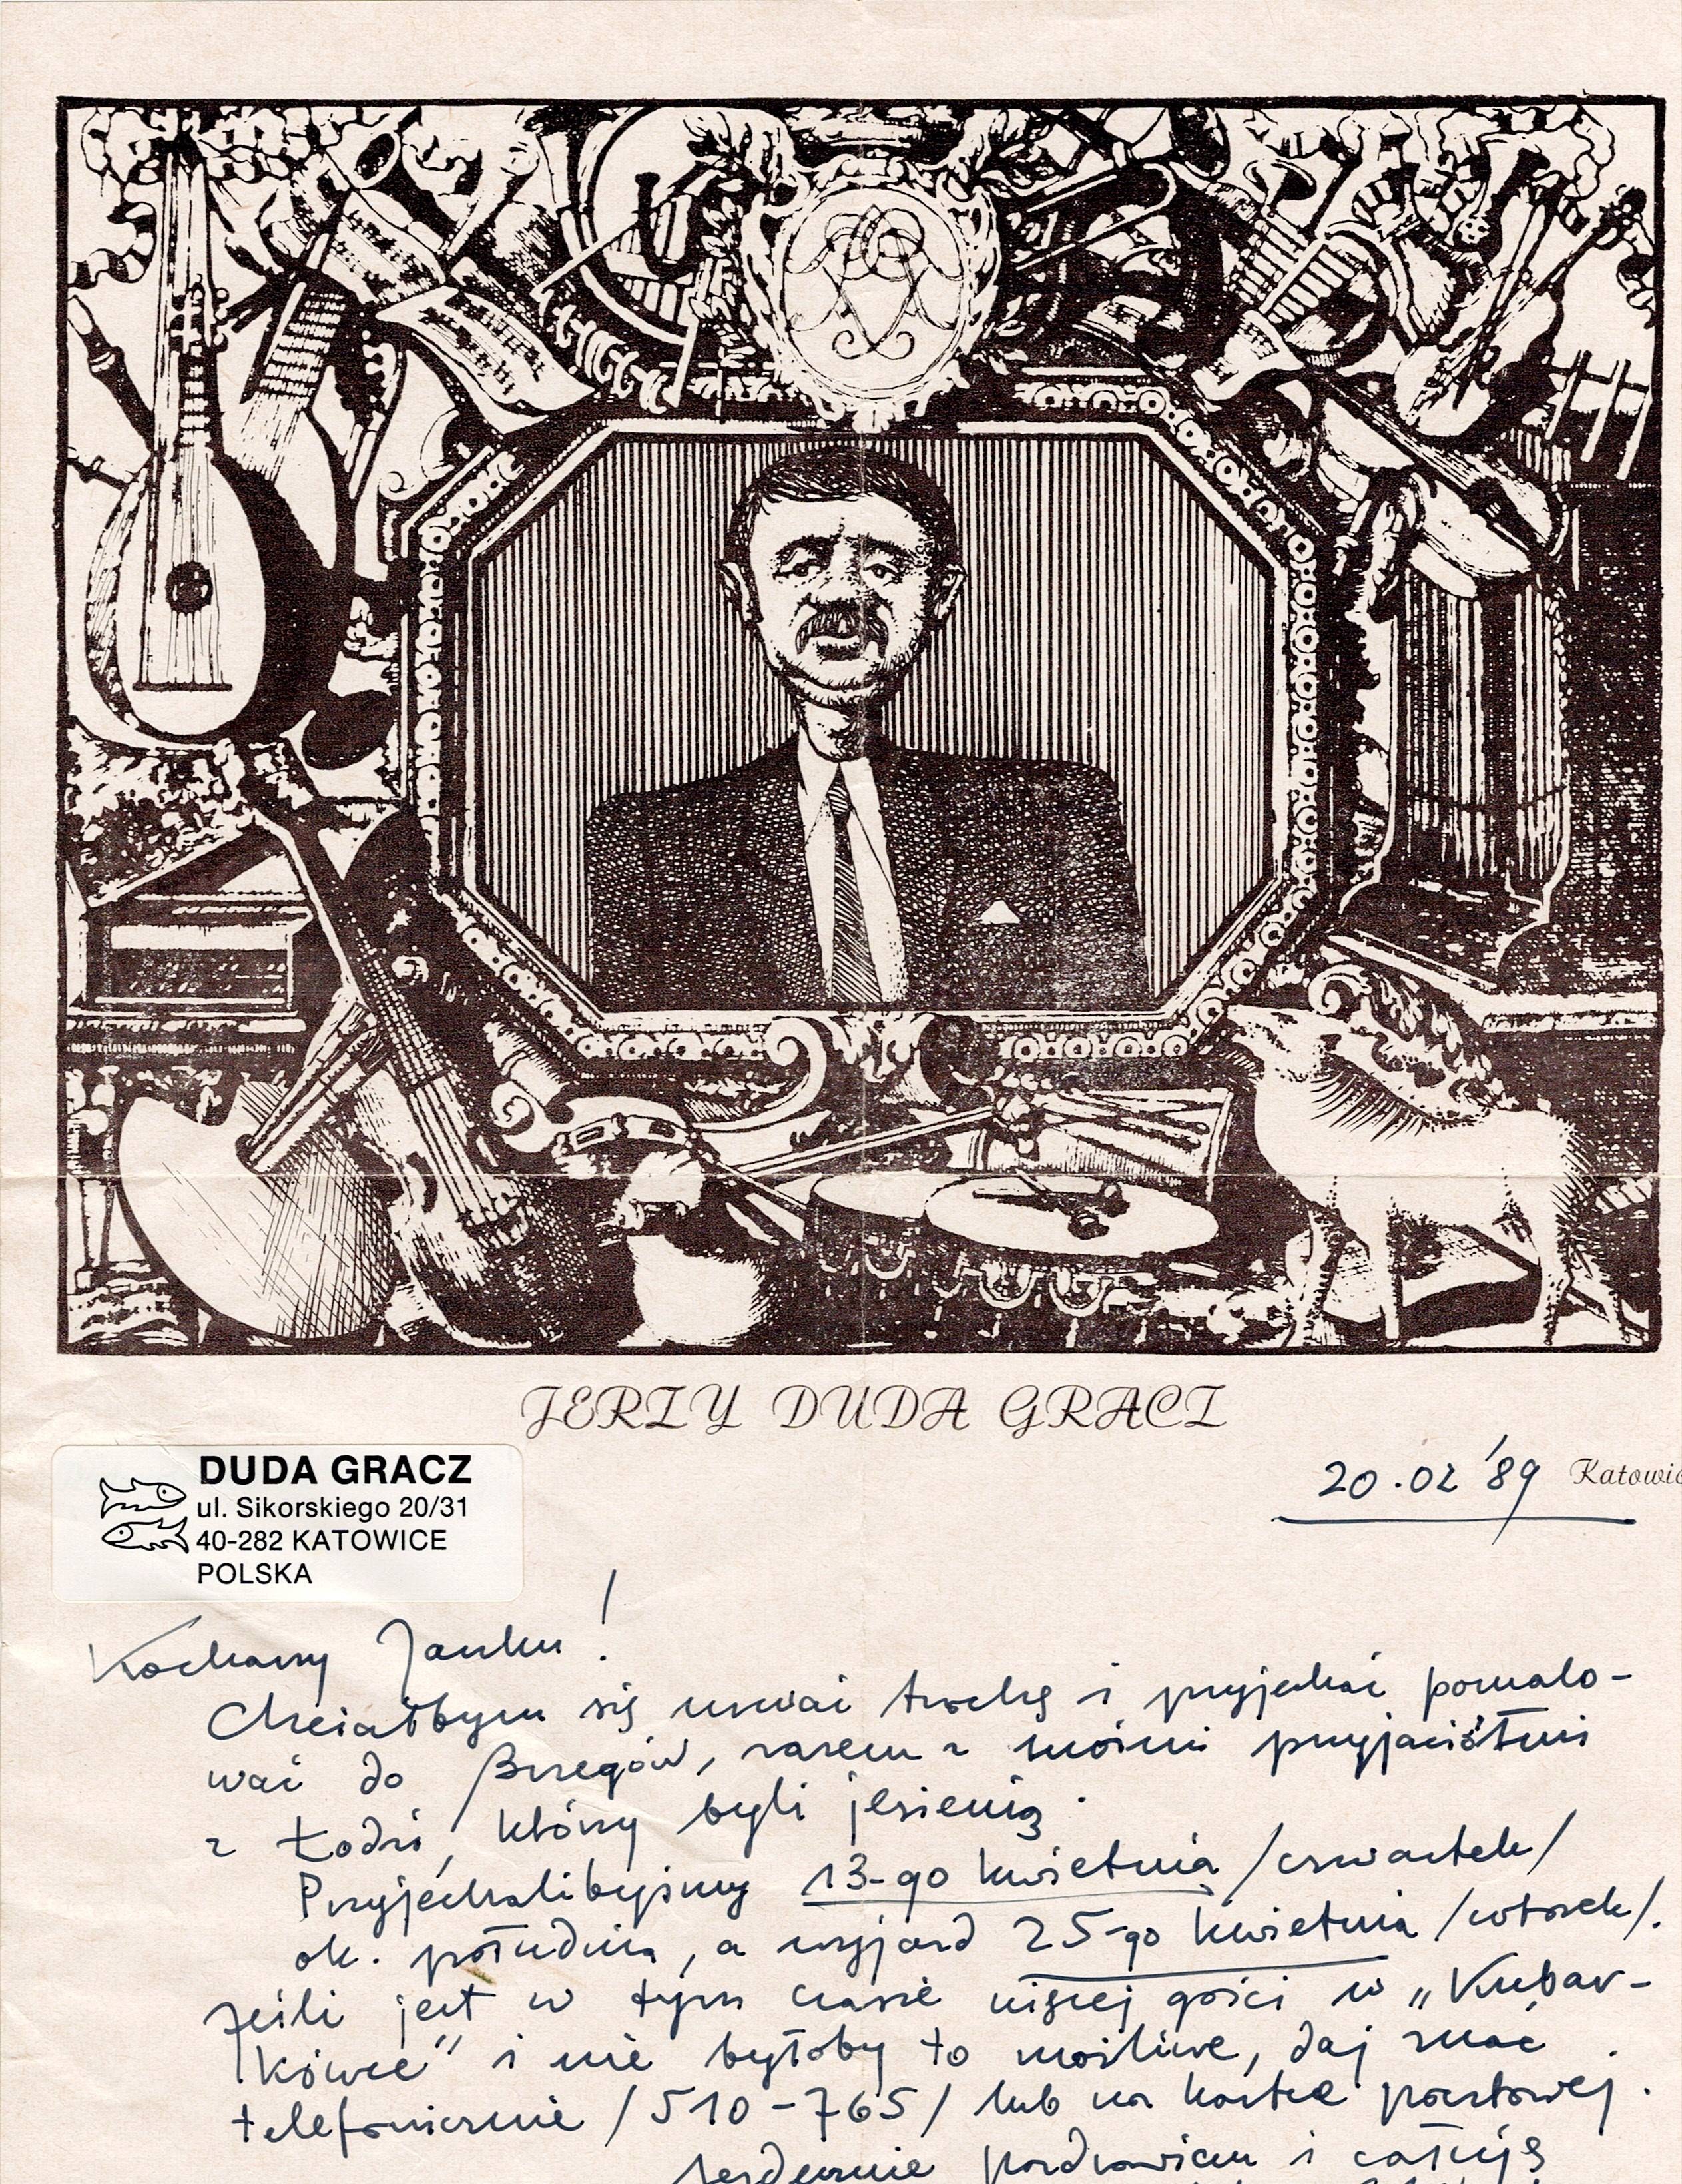 JERZY DUDA GRACZ
DUDA GRACZ
ul. Sikorskiego 20/31
40-282 KATOWICE
POLSKA
20.02 '89 Katowic
Kochany Janku!
Chciałbym się urwać trochę i przyjechać pomalo-
wać do Brzegów, razem z moimi przyjaciółmi
z Łodzi, którzy byli jesienią.
Przyjechalibyśmy 13-go kwietnia /czwartek/
ok. południa, a wyjazd 25-go kwietnia /wtorek/.
Jeśli jest w tym czasie więcej gości w „Kubar-
kówce" i nie byłoby to możliwe, daj znać
telefonicznie /510-765/ lub na kartce pocztowej.
Serdecznie pozdrawiam i całuję